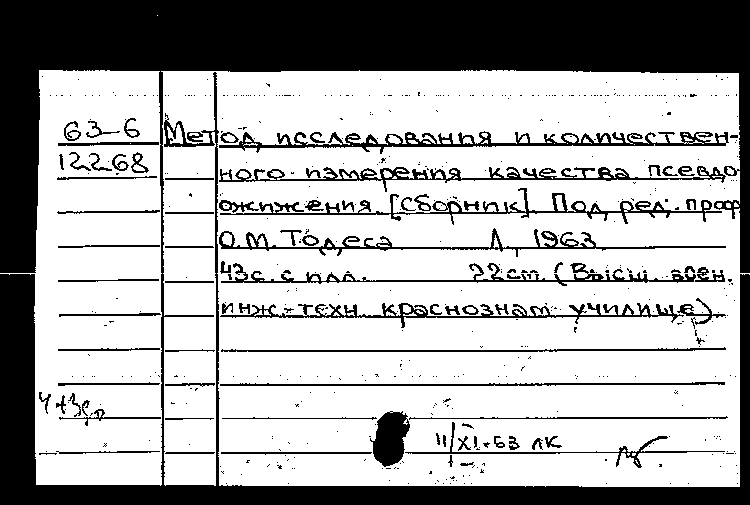 63-6 Метод исследования и количествен-
12268 ного измерения качества псевдо
ожижения. [Сборник]. Под ред. проф
О.М. Тодеса Л., 1963.
43с. с илл. 22 см. (Высш. воен.
инж.-техн. краснознам. училище).
11/XI-63 ЛК